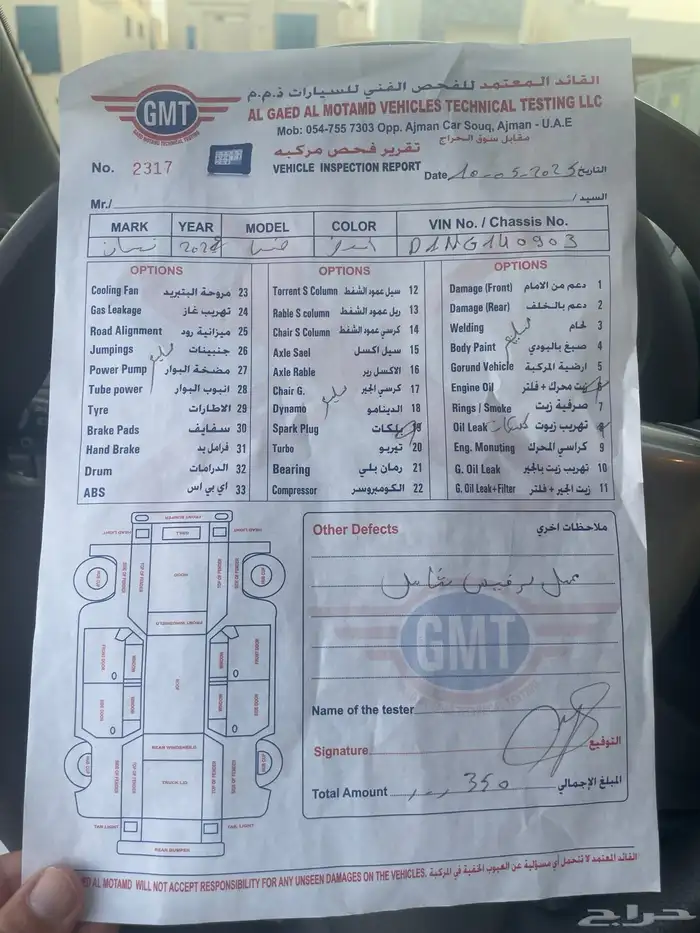 القائد المعتمد للفحص الفني للسيارات ذ.م.م
AL GAED AL MOTAMD VEHICLES TECHNICAL TESTING LLC
Mob: 054-755 7303 Opp. Ajman Car Souq, Ajman - U.A.E
مقابل سوق الحراج
GMT
تقرير فحص مركبه
No. 2317
VEHICLE INSPECTION REPORT
Date 10-05-2025 التاريخ
Mr./ السيد/
MARK YEAR MODEL COLOR VIN No. / Chassis No.
نيسان D1NG140903
OPTIONS OPTIONS OPTIONS
Cooling Fan مروحة التبتريد 23
Gas Leakage تهريب غاز 24
Road Alignment ميزانية رود 25
Jumpings جنبينات 26
Power Pump مضخة البوار 27
Tube power انبوب البوار 28
Tyre الاطارات 29
Brake Pads سفايف 30
Hand Brake فرامل يد 31
Drum الدرامات 32
ABS اي بي اس 33
سليم
Torrent S Column سيل عمود الشفط 12
Rable S column ربل عمود الشفط 13
Chair S Column كرسي عمود الشفط 14
Axle Sael سيل اكسل 15
Axle Rable الاكسل ربر 16
Chair G. كرسي الجير 17
Dynamo الدينامو 18
Spark Plug بلكات 19
Turbo تيربو 20
Bearing رمان بلي 21
Compressor الكومبروسر 22
سليم
Damage (Front) دعم من الامام 1
Damage (Rear) دعم بالخلف 2
Welding لحام 3
Body Paint صبغ بالبودي 4
Gorund Vehicle ارضية المركبة 5
Engine Oil زيت محرك + فلتر 6
Rings / Smoke صرفية زيت 7
Oil Leak تهريب زيوت 8
Eng. Monuting كراسي المحرك 9
G. Oil Leak تهريب زيت بالجير 10
G. Oil Leak+Filter زيت الجير + فلتر 11
سليم
FRONT BUMPER
HEAD LIGHT
GRILL
HEAD LIGHT
HOOD
FRONT WINDSHIELD
ROOF
REAR WINDSHIELD
TRUCK LID
TAIL LIGHT
TAIL LIGHT
REAR BUMPER
Other Defects ملاحظات اخري
عمل سرفيس شامل
GMT
Name of the tester
Signature التوقيع
Total Amount 350 المبلغ الإجمالي
القائد المعتمد لا تتحمل أي مسؤلية عن العيوب الخفية في المركبة.
ED AL MOTAMD WILL NOT ACCEPT RESPONSIBILITY FOR ANY UNSEEN DAMAGES ON THE VEHICLES.
حراج